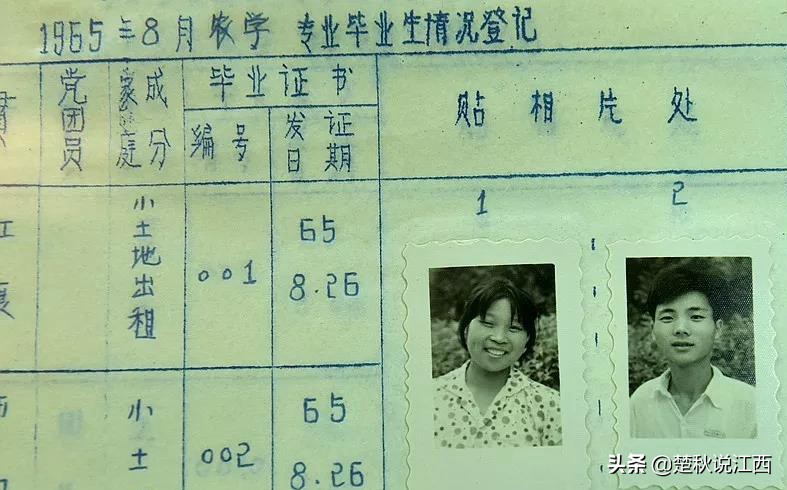 1965年8月农学 专业毕业生情况登记
党团员
家庭成分
毕业证书
编号
发证日期
贴相片处
小土地出租
001
65
8.26
1
2
小土
002
65
8.26
头条 @楚秋说江西